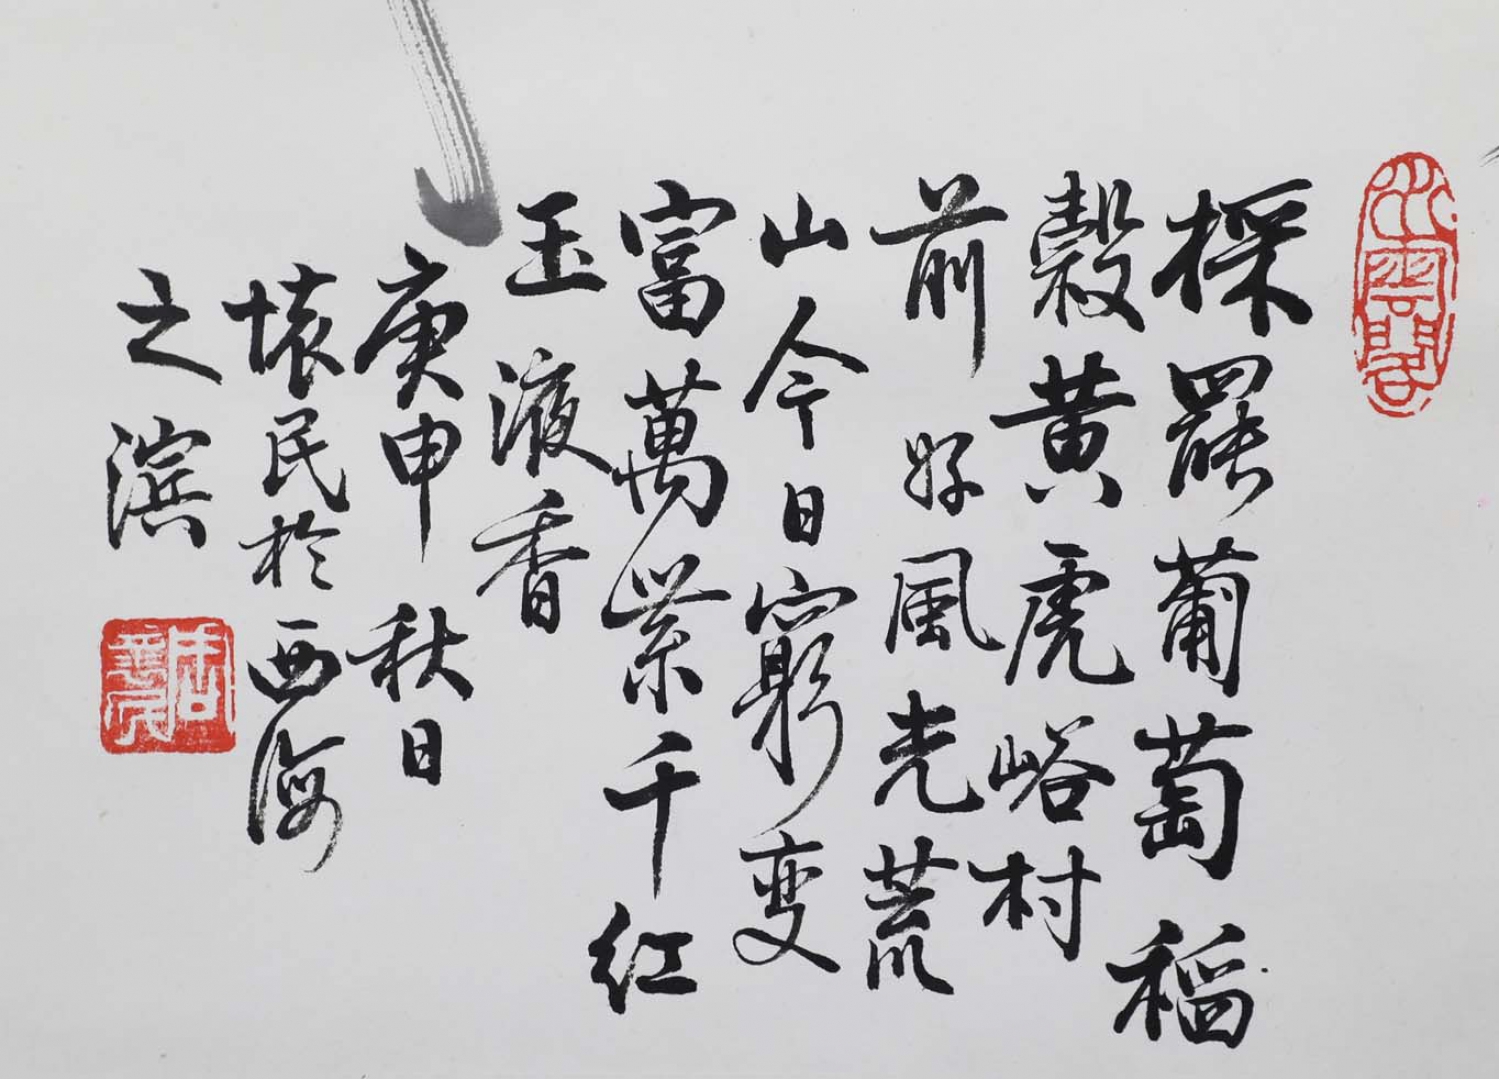 採罷葡萄稻
穀黄虎峪村
前好風光荒
山今日窮变
富萬紫千红
玉液香
庚申秋日
懷民於西海
之滨